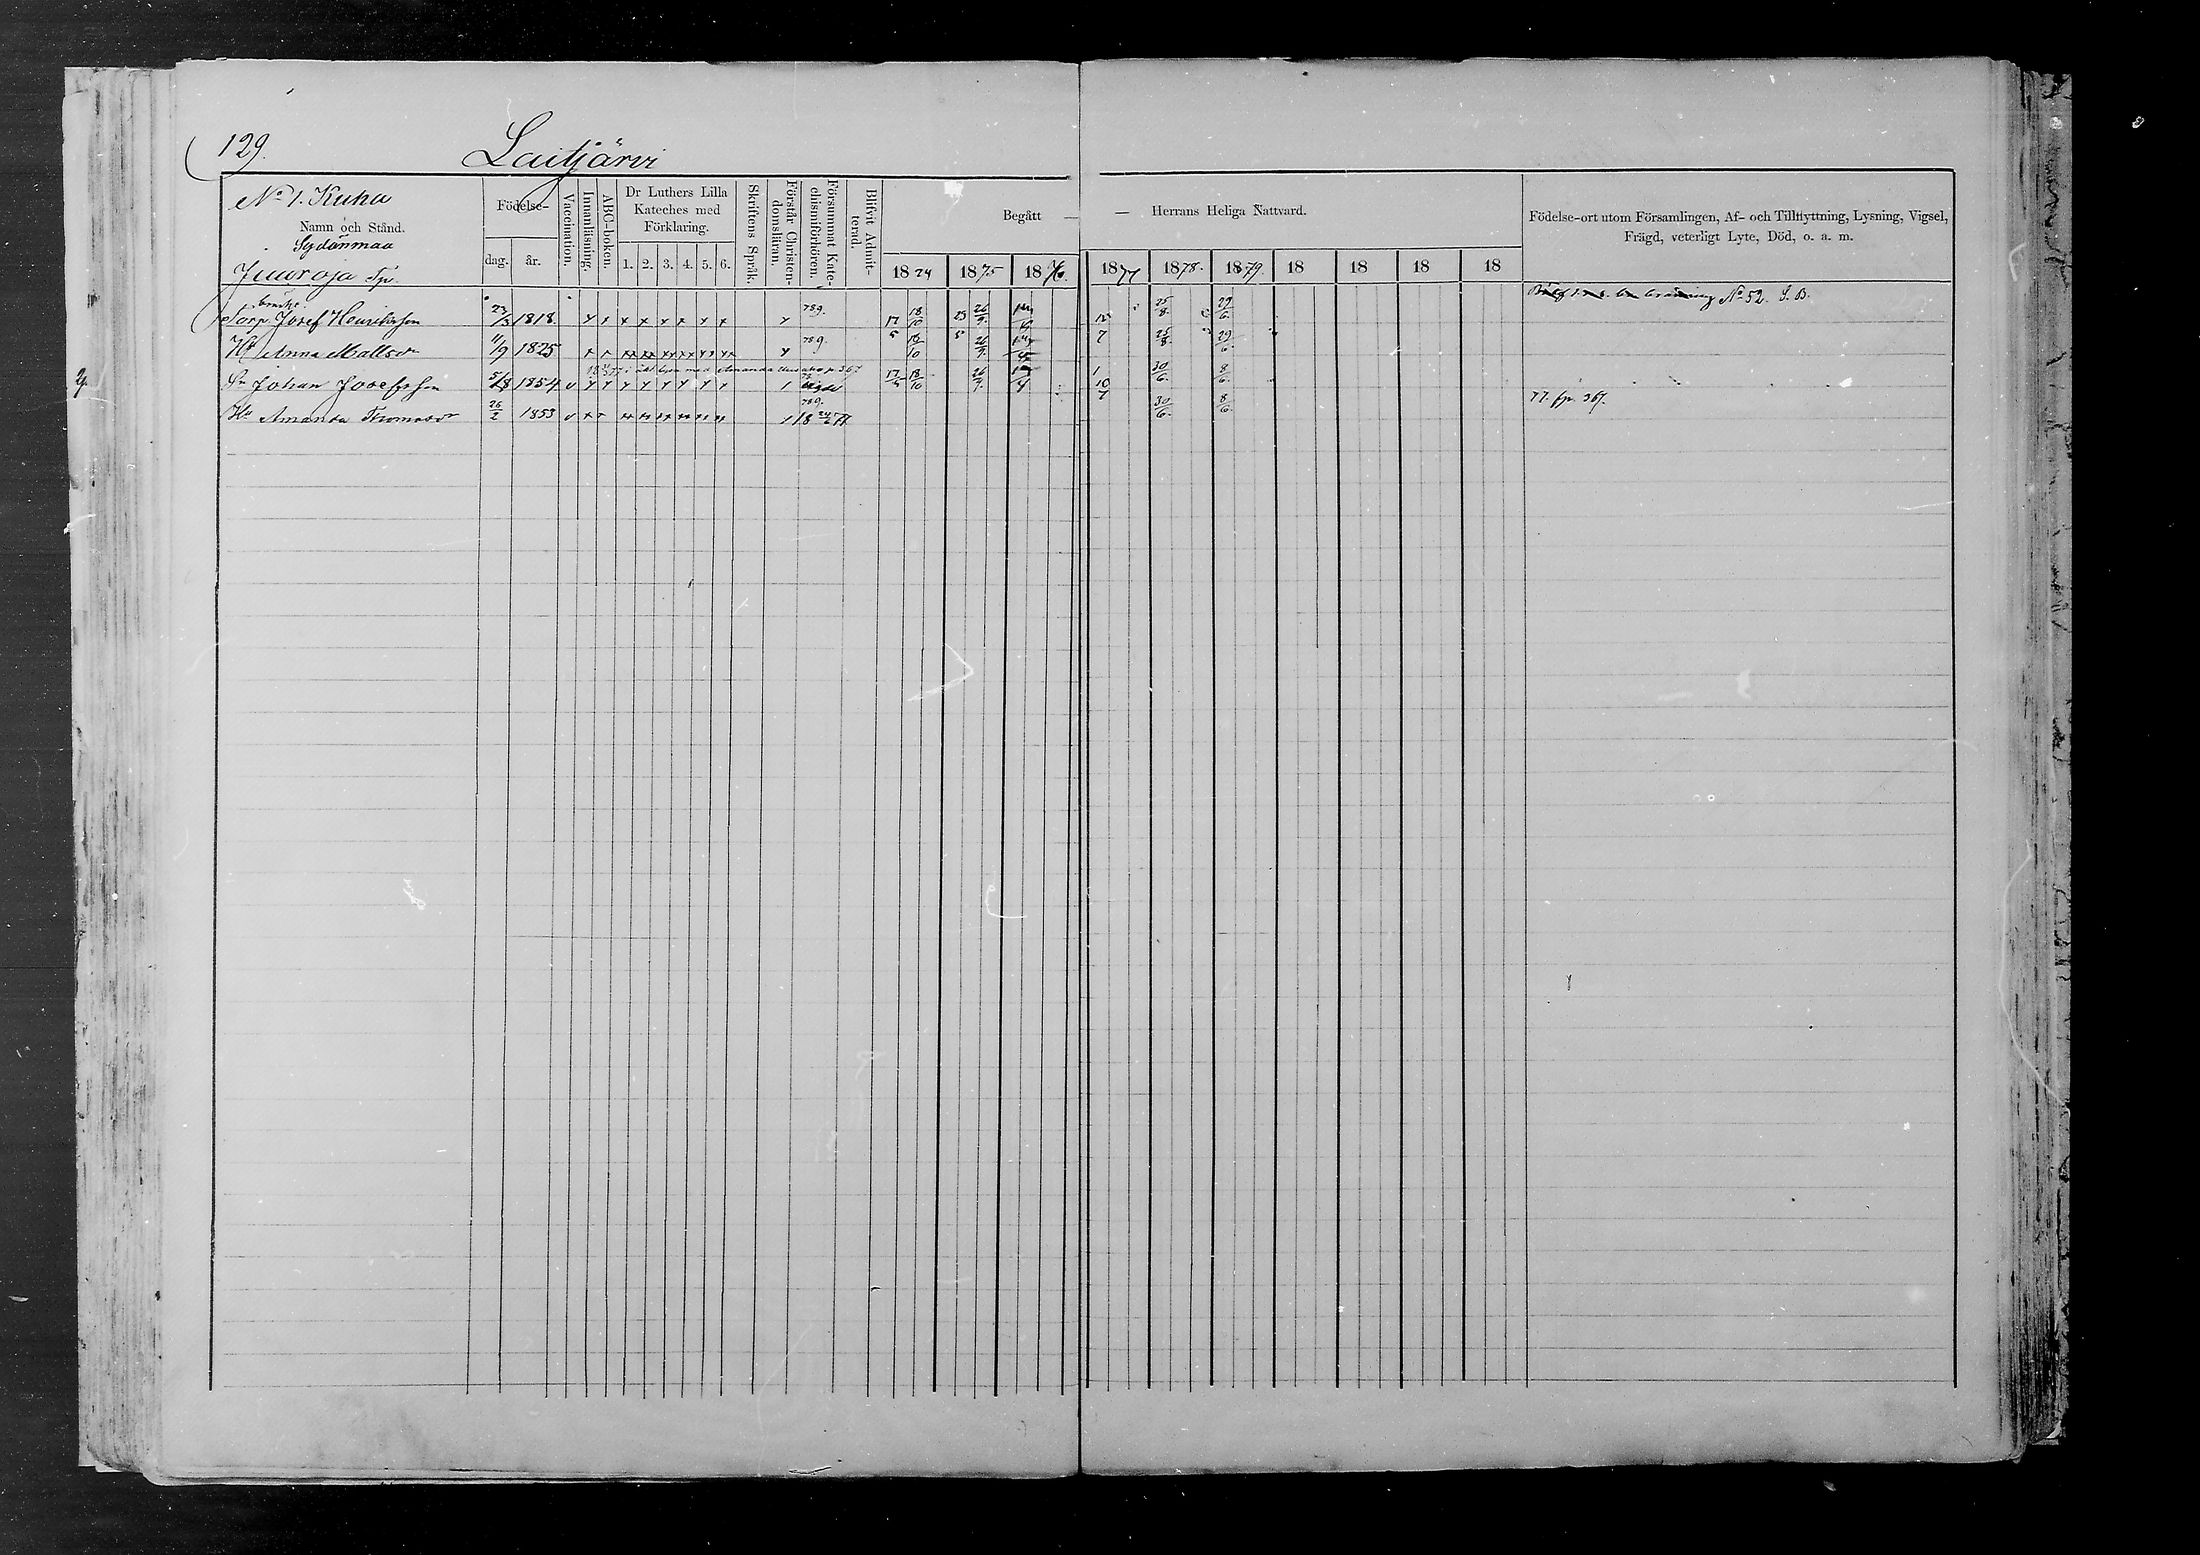 129.
Laitjärvi
No 1. Kuha
Namn och Stånd.
Sydänmaa
Juuroja Tp.
Födelse-
dag. år.
Vaccination.
Innanläsning.
ABC-boken.
Dr Luthers Lilla
Kateches med
Förklaring.
1. 2. 3. 4. 5. 6.
Skriftens Språk.
Förstår Christen-
domsläran.
Försummat Kate-
chismiförhören.
Blifvit Admit-
terad.
Begått — — Herrans Heliga Nattvard.
18 74 18 75 18 76. 18 77 18 78. 18 79. 18 18 18 18
Födelse-ort utom Församlingen, Af- och Tillflyttning, Lysning, Vigsel,
Frägd, veterligt Lyte, Död, o. a. m.
Torp Josef Henriksson 23/3 1818. x x x x x x x x x 789. 18/10 23 26/9. 25/8. 29/6. No 52. S. B.
Hu Anna Mattsdr 11/9 1825 789. 26/9. 7 25/8. 29/6.
med Amanda p 367
Sn Johan Josefsson 5/8 1854 v x x x x x x x x 18/10 26/9. 30/6. 8/6.
Hu Amanda Thomasdr 26/2 1853 v 789. 30/6. 8/6. 77. fr. 367.